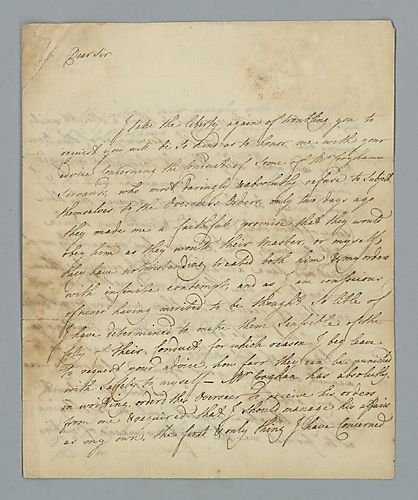 Dear Sir
I take the liberty again of troubling you to
request you will be so kind as to honor me with your
advice concerning the conduct of some of Mr Conghams
Servants, who most daringly & absolutely refuse to submit
themselves to the Overseers Orders, only two days ago
they made me a faithfull promise that they would
obey him as they would their Master, or myself,
they have notwithstanding treated both him & my orders
with infinite contempt, and as I am conscious
of never having merited to be thought so little of
I have determined to make them sensible of the
folly of their Conduct for which reason I beg leave
to request your advice, how far they can be punished
with Safety to myself — Mr Congham has absolutely,
in writing, orderd this Overseer to receive his orders
from me & required that I should manage his affairs
as my own, the first & only thing I have concerned